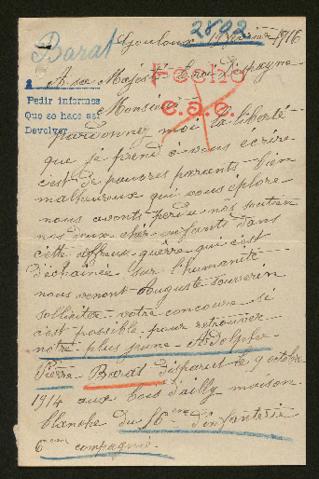 2802
Barat
Toulouse 19 février 1916
A sa Majesté le roi d'Espagne
Fecho
c.a.c.
Pedir informes
Que se hace así
Devolver
Monsieur
pardonnez moi la liberté
que je prend à vous écrire
c'est de pauvres parants bien
malheureux qui vous eplore
nous avonts perdu nos soutien
nos deux cher enfants dans
cette affreuse guerre qui c'est
déchainée sur l'humanité
nous venont Auguste Souverin
solliciter votre concoure si
c'est possible pour retrouver
notre plus jeune Adolphe
Pierre Barat disparut le 9 octobre
1914 aux bois d'ailly maison
blanche du 16 ème d'infanterie
6 eme compagnie.